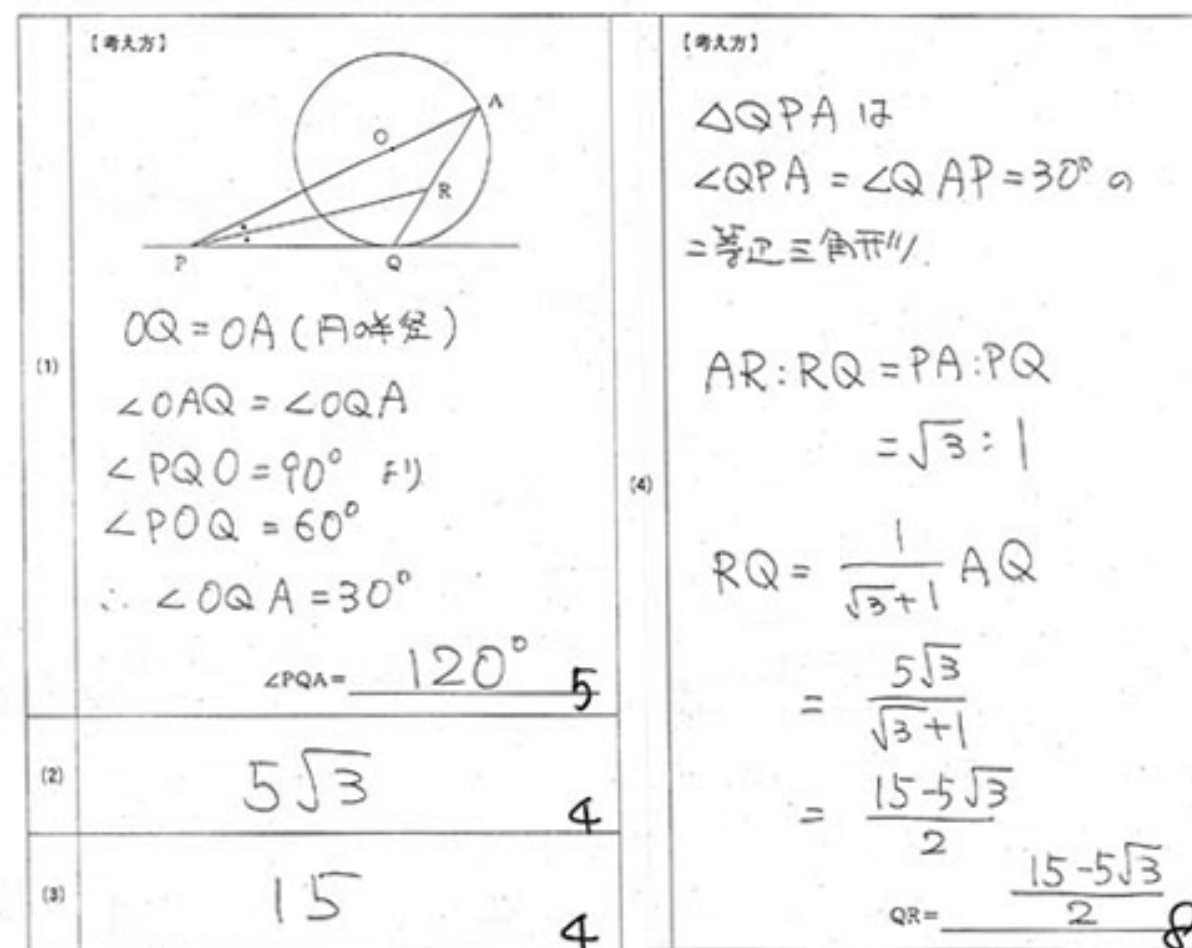 【考え方】
A
O
R
P
Q
(1)
OQ=OA(円の半径)
∠OAQ=∠OQA
∠PQO=90° より
∠POQ=60°
∴ ∠OQA=30°
∠PQA= 120° 5
(2) 5√3 4
(3) 15 4
【考え方】
(4)
△QPAは
∠QPA=∠QAP=30°の
二等辺三角形より
AR:RQ=PA:PQ
=√3:1
RQ= 1/(√3+1) AQ
= 5√3/(√3+1)
= (15-5√3)/2
QR= (15-5√3)/2 8